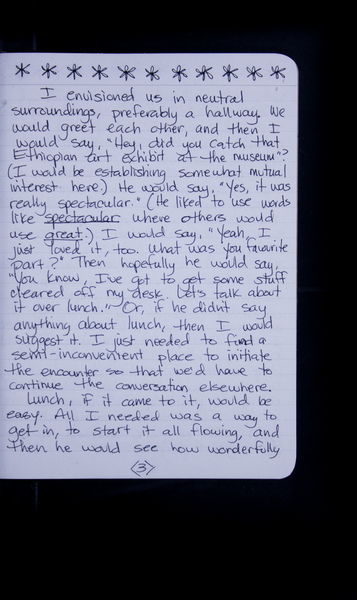 I envisioned us in neutral
surroundings, preferably a hallway. We
would greet each other, and then I
would say, "Hey, did you catch that
Ethiopian art exhibit at the museum"?
(I would be establishing somewhat mutual
interest here.) He would say, "Yes, it was
really spectacular." (He liked to use words
like spectacular where others would
use great.) I would say, "Yeah, I
just loved it, too. What was you favourite
part?" Then hopefully he would say,
"You know, I've got to get some stuff
cleared off my desk. Let's talk about
it over lunch." Or, if he didn't say
anything about lunch, then I would
suggest it. I just needed to find a
semi-inconvenient place to initiate
the encounter so that we'd have to
continue the conversation elsewhere.
Lunch, if it came to it, would be
easy. All I needed was a way to
get in, to start it all flowing, and
then he would see how wonderfully
3